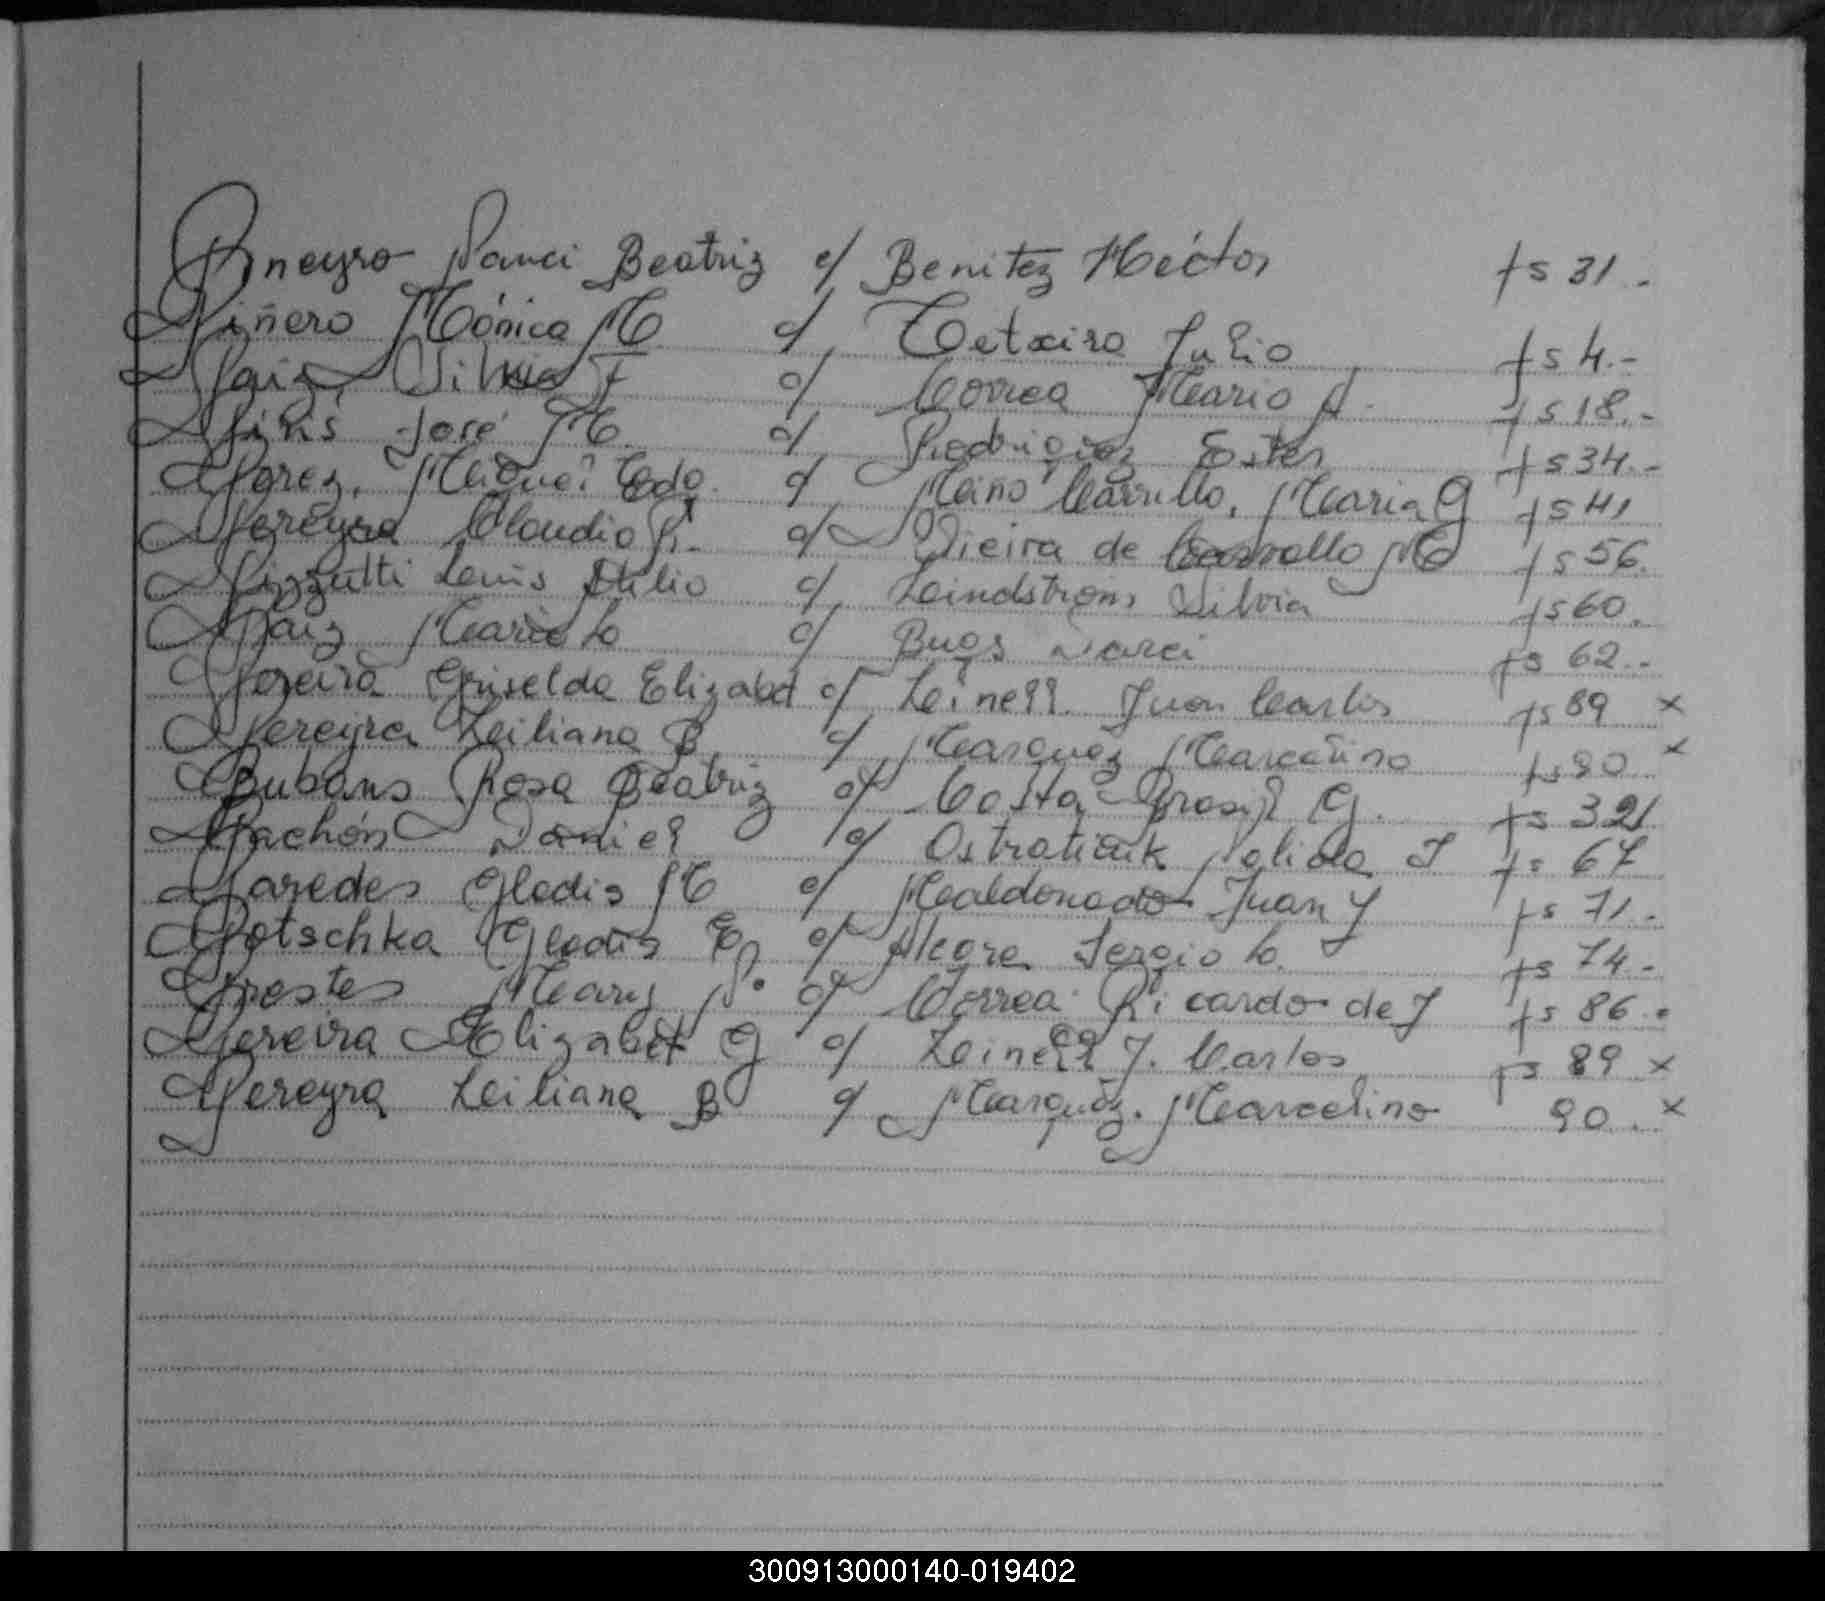 Pineyro Nanci Beatriz c/ Benitez Héctor fs 31.-
Piñero Mónica M c/ Tetxeira Julio fs 4.-
Paiz, Silvia F c/ Correa Mario A. fs 18.-
José M. c/ Rodriguez Ester fs 34.-
Perez, Miguel Edo. c/ Miño Carrillo, Maria G fs 41
Pereyra Claudio R. c/ Vieira de Carvallo M fs 56.
Pizzutti Luis Atilio c/ Lindstrom Silvia fs 60.
Paiz Mario C c/ Bugs Darci fs 62.-
Pereira Griselda Elizabet c/ Leinell Juan Carlos fs 89 x
Pereyra Liliana B. c/ Marquez Marcelino fs 90 x
Rosa Beatriz c/ Costa Brasil G. fs
Pachón Daniel c/ Nelida I fs 67
Paredes Gladis M c/ Maldonado Juan J fs 71.-
Potschka Gladis E. c/ Alegre Sergio C. fs 74.-
Prestes Mary N. c/ Correa Ricardo de J fs 86.-
Pereira Elizabet G c/ Leinell J. Carlos fs 89 x
Pereyra Liliana B c/ Marquez. Marcelino 90. x
300913000140-019402